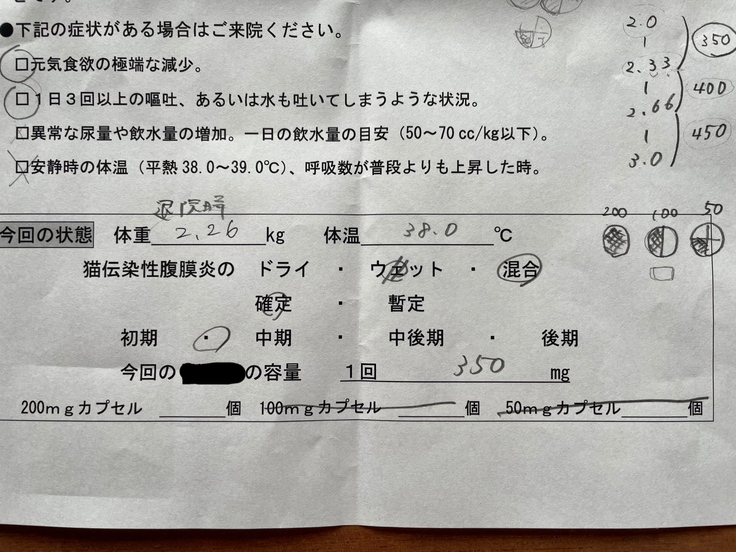 ●下記の症状がある場合はご来院ください。
□元気食欲の極端な減少。
□1日3回以上の嘔吐、あるいは水も吐いてしまうような状況。
□異常な尿量や飲水量の増加。一日の飲水量の目安(50~70cc/kg以下)。
□安静時の体温(平熱38.0~39.0℃)、呼吸数が普段よりも上昇した時。
2.0
1
2.33
1
2.66
1
3.0
350
400
450
退院時
今回の状態 体重 2.26 kg 体温 38.0 ℃
200 100 50
猫伝染性腹膜炎の ドライ ・ ウェット ・ 混合
確定 ・ 暫定
初期 ・ 中期 ・ 中後期 ・ 後期
今回の の容量 1回 350 mg
200mgカプセル 個 100mgカプセル 個 50mgカプセル 個